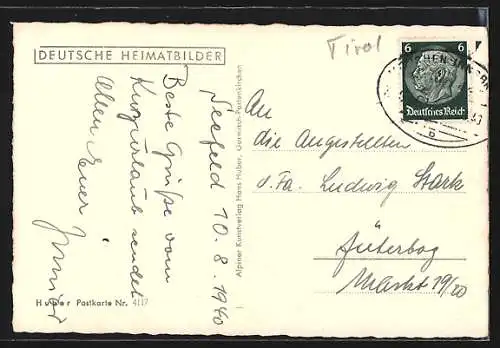 DEUTSCHE HEIMATBILDER
Seefeld 10.8.1940
Beste Grüße vom
Kurzurlaub sendet
Allen Euer
Junior
Huber Postkarte Nr. 4117
Alpiner Kunstverlag Hans Huber, Garmisch-Partenkirchen
Tirol
6 6
Deutsches Reich
An
die Angestellten
d. Fa. Ludwig Stark
Jüterbog
Markt 19/20